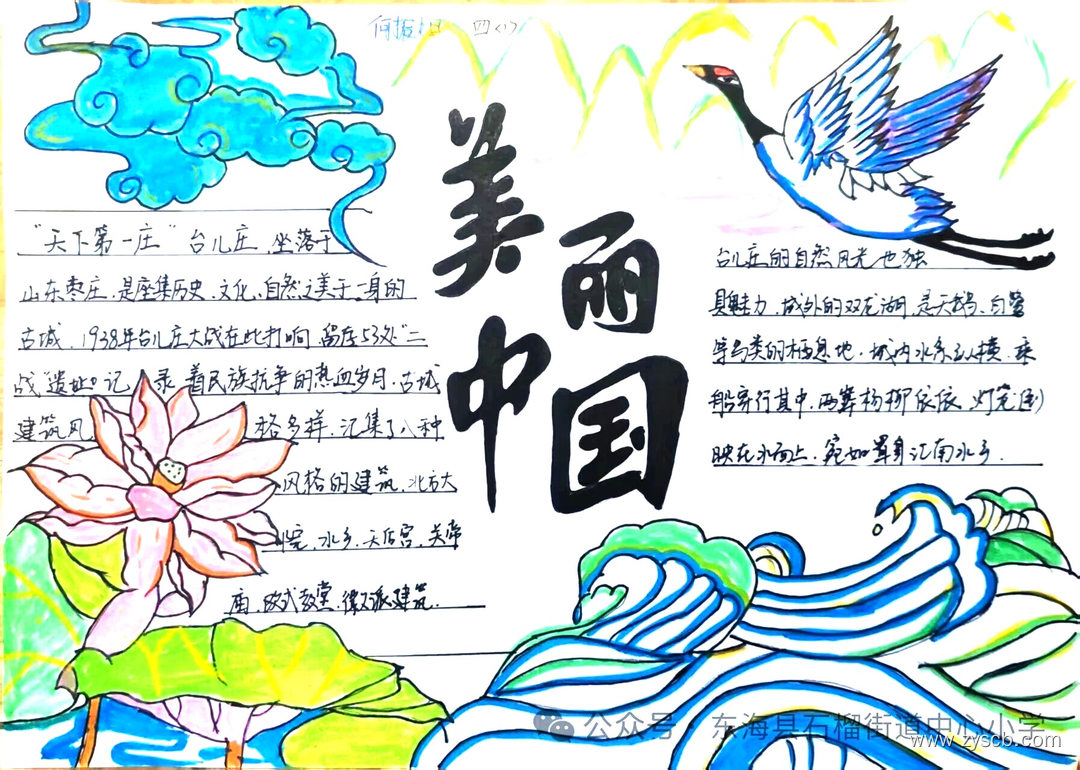 四(1)
美丽中国
"天下第一庄"台儿庄,坐落于
山东枣庄,是座集历史、文化、自然之美于一身的
古城,1938年台儿庄大战在此打响,留存53处"二
战"遗址,记录着民族抗争的热血岁月.古城
建筑风格多样,汇集了八种
风格的建筑,北方大
院,水乡,天后宫,关帝
庙,欧式教堂,徽派建筑.
台儿庄的自然风光也独
具魅力,城外的双龙湖,是天鹅、白鹭
等鸟类的栖息地,城内水系纵横,乘
船穿行其中,两岸杨柳依依、灯笼倒
映在水面上,宛如置身江南水乡.
公众号 · 东海县石榴街道中心小学
www.zyscb.com